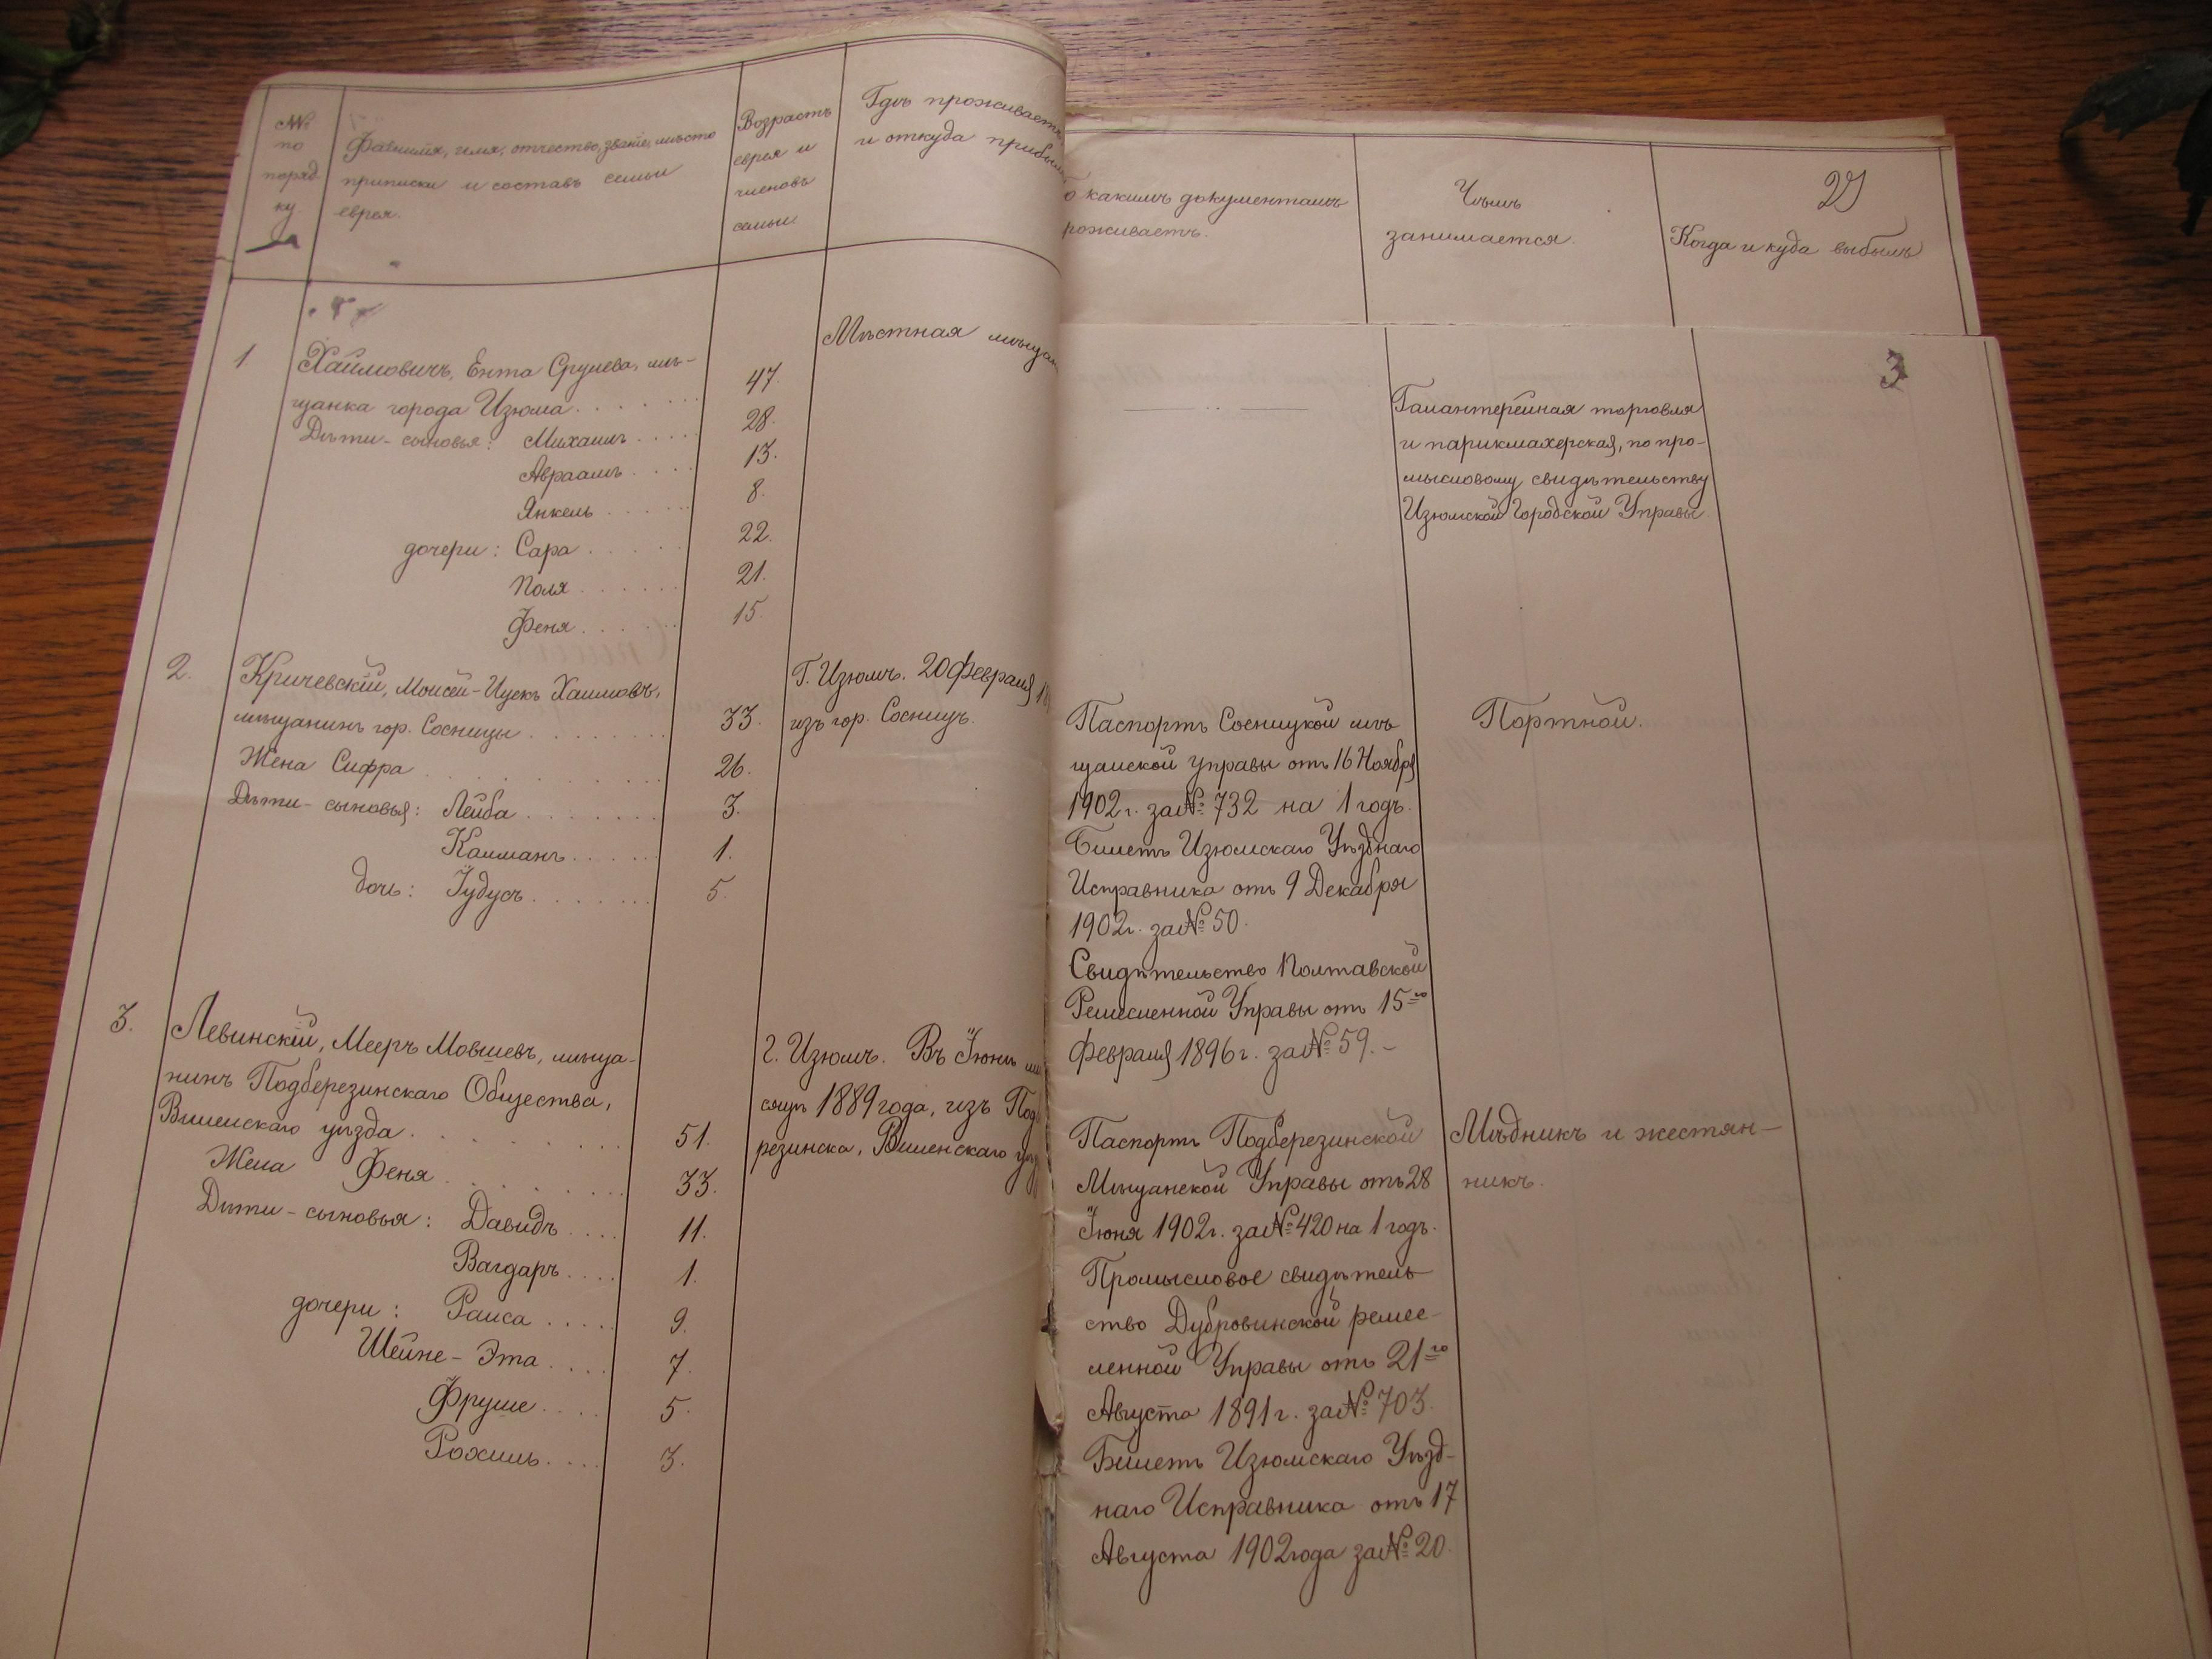 №№
по
поряд
ку.
Фамилія, имя, отчество, званіе, мѣсто
приписки и составъ семьи
еврея.
Возрастъ
еврея и
членовъ
семьи.
Гдѣ проживаетъ
и откуда прибыл
о какимъ документамъ
роживаетъ.
Чѣмъ
занимается.
Когда и куда выбылъ
3
1
Хаимовичъ, Ента Срулева, мѣ-
щанка города Изюма . . . . . . 47.
Дѣти - сыновья: Михаилъ . . . . . 28.
Авраамъ . . . . 13.
Янкель . . . . . 8.
дочери: Сара . . . . . 22.
Поля . . . . . . 21.
Феня . . . . . . 15.
Мѣстная мѣщан
Галантерейная торговля
и парикмахерская, по про-
мысловому свидѣтельству
Изюмской Городской Управы
2.
Кричевскій, Моисей-Ицекъ Хаимовъ,
мѣщанинъ гор. Сосницы . . . . . . . . 33.
Жена Сифра . . . . . . . . . . 26.
Дѣти - сыновья: Лейба . . . . . . . . 3.
Калманъ . . . . . . 1.
дочь: Іудусъ . . . . . . . 5.
Г. Изюмъ. 20 Февраля
изъ гор. Сосницъ.
Паспортъ Сосницкой мѣ
щанской управы отъ 16 Ноября
1902 г. за № 732 на 1 годъ.
Билетъ Изюмскаго Уѣзднаго
Исправника отъ 9 Декабря
1902 г. за № 50.
Свидѣтельство Полтавской
Ремесленной Управы отъ 15го
Февраля 1896 г. за № 59. -
Портной.
3.
Левинскій, Мееръ Мовшевъ, мѣща-
нинъ Подберезинскаго Общества,
Виленскаго уѣзда . . . . . . . . . 51.
Жена Феня . . . . . . . . 33.
Дѣти - сыновья: Давидъ . . . . 11.
Вагдаръ . . . . 1.
дочери: Раиса . . . . . 9.
Шейне - Эта . . . . 7.
Фруше . . . . 5.
Рохиль . . . . 3.
г. Изюмъ. Въ Іюнѣ мѣ
сяцѣ 1889 года, изъ Подб
резинска, Виленскаго уѣ
Паспортъ Подберезинской
Мѣщанской Управы отъ 28
Іюня 1902 г. за № 420 на 1 годъ.
Промысловое свидѣтель
ство Дубровинской ремес-
ленной Управы отъ 21го
Августа 1891 г. за № 703.
Билетъ Изюмскаго Уѣзд-
наго Исправника отъ 17
Августа 1902 года за № 20.
Мѣдникъ и жестян-
никъ.